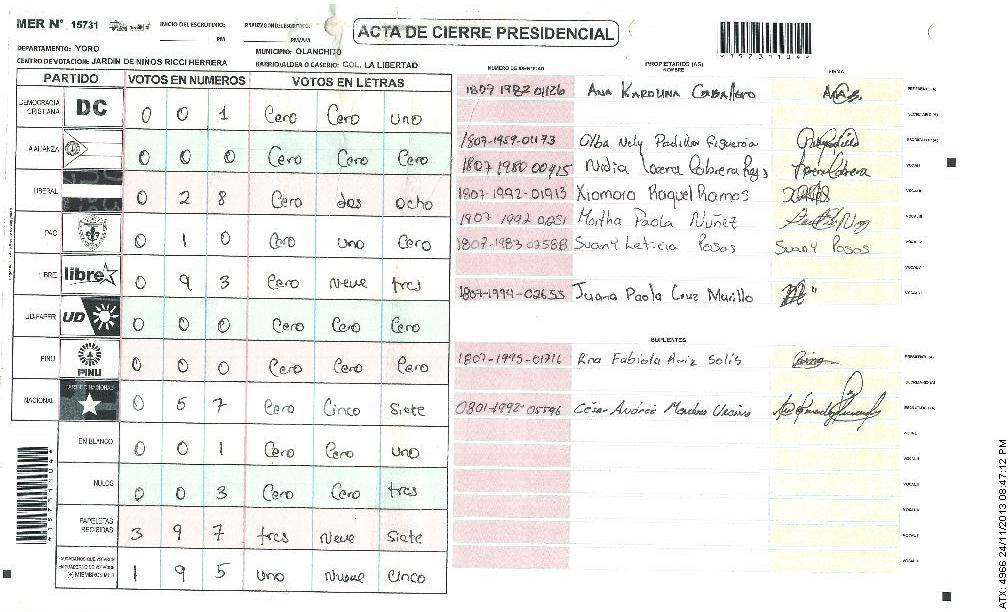 MER N° 15731 INICIO DEL ESCRUTINIO: PM PM/AM
ACTA DE CIERRE PRESIDENCIAL
DEPARTAMENTO: YORO MUNICIPIO: OLANCHITO
CENTRO DE VOTACION: JARDIN DE NIÑOS RICCI HERRERA BARRIO/ALDEA O CASERIO: COL. LA LIBERTAD
PARTIDO VOTOS EN NUMEROS VOTOS EN LETRAS
DEMOCRACIA CRISTIANA DC 0 0 1 Cero Cero uno
ALIANZA 0 0 0 Cero Cero Cero
LIBERAL 0 2 8 Cero dos ocho
PAC 0 1 0 Cero uno Cero
LIBRE libre 0 9 3 Cero Neve tres
UD-FAPER UD 0 0 0 Cero Cero Cero
PINU PINU 0 0 0 Cero Cero Cero
NACIONAL PARTIDO NACIONAL 0 5 7 Cero Cinco Siete
EN BLANCO 0 0 1 Cero Cero uno
NULOS 0 0 3 Cero Cero tres
PAPELETAS RECIBIDAS 3 9 7 tres Neve Siete
CIUDADANOS QUE VOTARON EN CUADERNO DE VOTACION (+) MIEMBROS MER 1 9 5 uno Nueve Cinco
NUMERO DE IDENTIDAD PROPIETARIOS (AS) NOMBRE FIRMA
1807 1982 01126 Ana Karolina Caballero PRESIDENTE (A)
SECRETARIO (A)
1807-1959-01173 Olba Nely Padilla Figueroa ESCRUTADOR (A)
1807 1980 00915 Nidia Lorena Cabrera Reyes VOCAL I
1807-1992-01913 Xiomara Raquel Ramos VOCAL II
1807 1992 0251 Martha Paola Nuñez VOCAL III
1807-1983 02588 Suany Leticia Posas Suany Posas VOCAL IV
VOCAL V
1807-1994-02655 Juana Paola Cruz Murillo VOCAL VI
SUPLENTES
1807-1995-01716 Rina Fabiola Ruiz Solis PRESIDENTE (A)
SECRETARIO (A)
0801-1992-05596 César Andrés ESCRUTADOR (A)
VOCAL I
VOCAL II
VOCAL III
VOCAL IV
VOCAL V
VOCAL VI
ATX: 4966 24/11/2013 08:47:12 PM